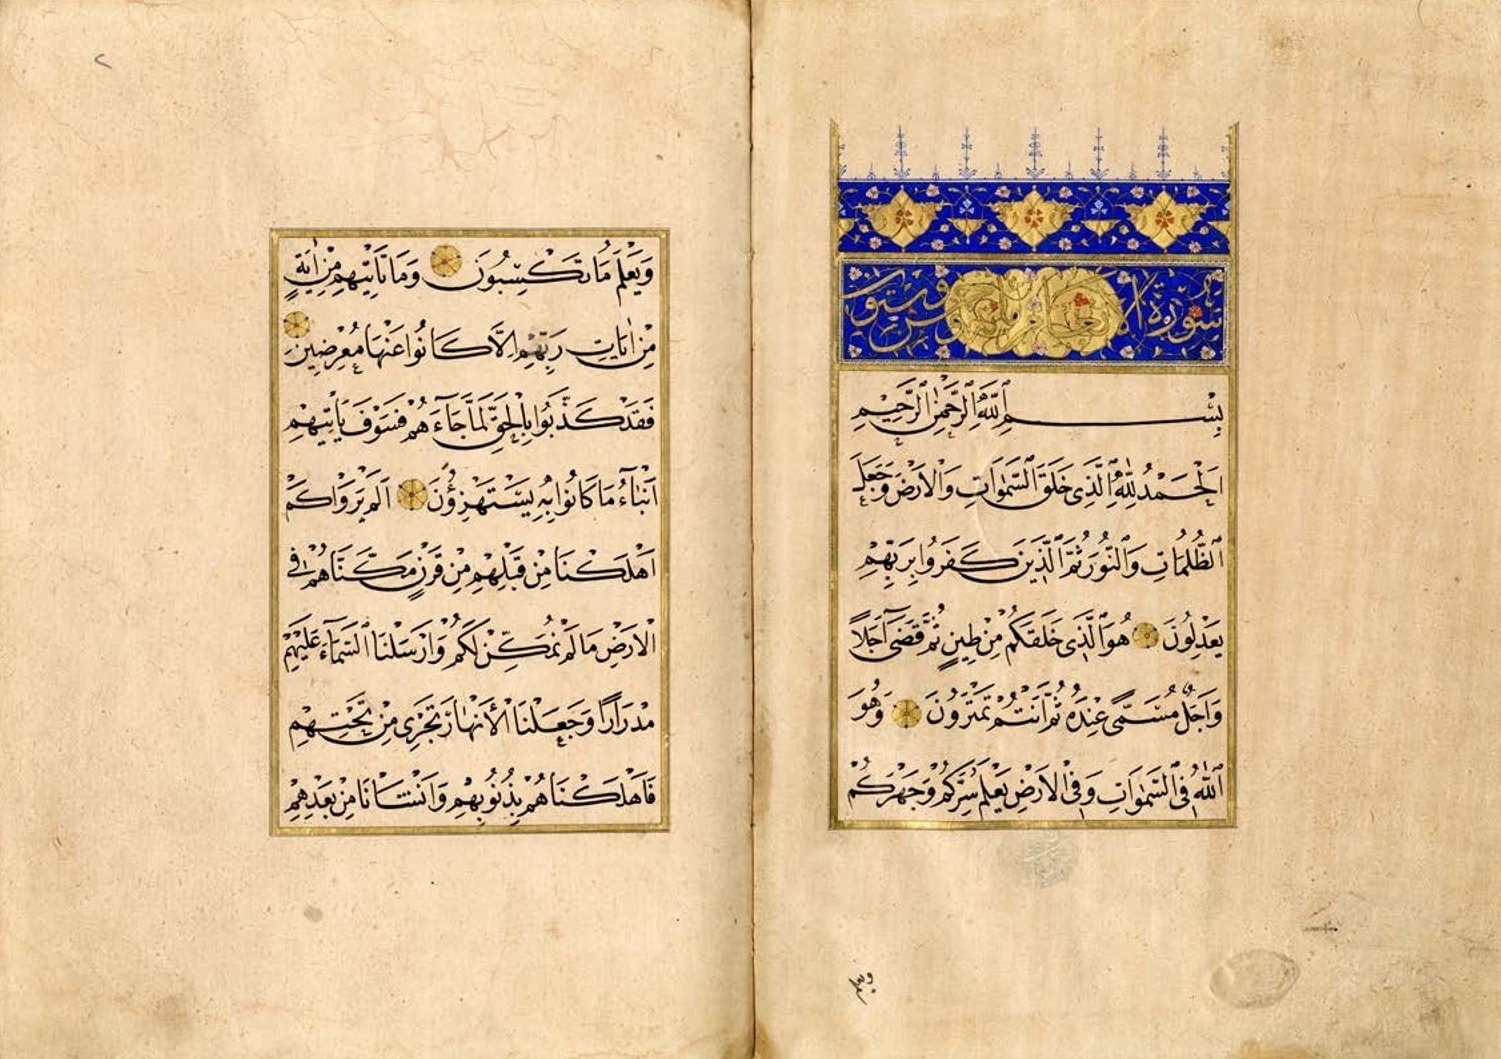 سورة
بِسْمِ اللّٰهِ الرَّحْمٰنِ الرَّحِيمِ
اَلْحَمْدُ لِلّٰهِ الَّذِى خَلَقَ السَّمٰوَاتِ وَالْاَرْضَ وَجَعَلَ
الظُّلُمَاتِ وَالنُّورَ ثُمَّ الَّذِينَ كَفَرُوا بِرَبِّهِمْ
يَعْدِلُونَ هُوَ الَّذِى خَلَقَكُمْ مِنْ طِينٍ ثُمَّ قَضَى اَجَلًا
وَاَجَلٌ مُسَمًّى عِنْدَهُ ثُمَّ اَنْتُمْ تَمْتَرُونَ وَهُوَ
اللّٰهُ فِى السَّمٰوَاتِ وَفِى الْاَرْضِ يَعْلَمُ سِرَّكُمْ وَجَهْرَكُمْ
وَيَعْلَمُ مَا تَكْسِبُونَ وَمَا تَاْتِيهِمْ مِنْ اٰيَةٍ
مِنْ اٰيَاتِ رَبِّهِمْ اِلَّا كَانُوا عَنْهَا مُعْرِضِينَ
فَقَدْ كَذَّبُوا بِالْحَقِّ لَمَّا جَآءَهُمْ فَسَوْفَ يَاْتِيهِمْ
اَنْبَآءُ مَا كَانُوا بِهِ يَسْتَهْزِؤُنَ اَلَمْ يَرَوْا كَمْ
اَهْلَكْنَا مِنْ قَبْلِهِمْ مِنْ قَرْنٍ مَكَّنَّاهُمْ فِى
الْاَرْضِ مَا لَمْ نُمَكِّنْ لَكُمْ وَاَرْسَلْنَا السَّمَآءَ عَلَيْهِمْ
مِدْرَارًا وَجَعَلْنَا الْاَنْهَارَ تَجْرِى مِنْ تَحْتِهِمْ
فَاَهْلَكْنَاهُمْ بِذُنُوبِهِمْ وَاَنْشَاْنَا مِنْ بَعْدِهِمْ